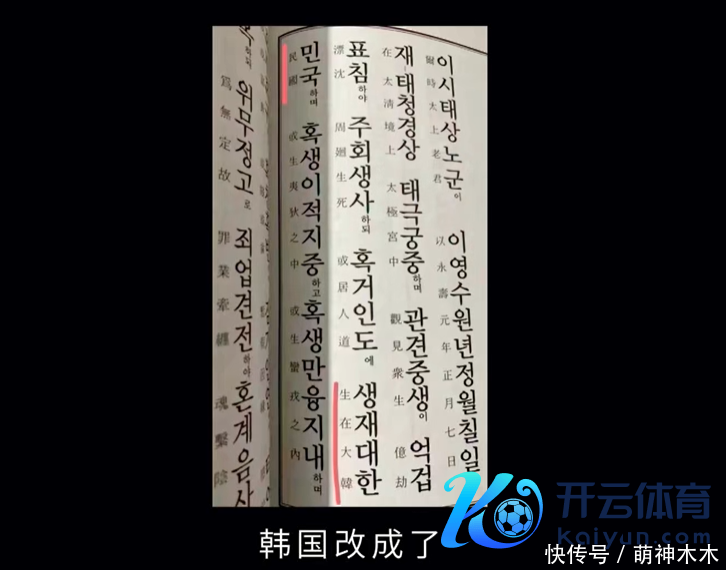 이시태상노군이 이영수원년정월칠일
爾時太上老君 以永壽元年正月七日
재태청경상 태극궁중하며 관견중생이 억겁
在太淸境上 太極宮中 觀見衆生 億劫
표침하야 주회생사하되 혹거인도에 생재대한
漂沈 周廻生死 或居人道 生在大韓
민국하며 혹생이적지중하고 혹생만융지내하며
民國 或生夷狄之中 或生蠻戎之內
위무정고로 죄업견전하야 혼계음
爲無定故 罪業牽纏 魂繫陰
韩国改成了
开云体育
kaiyun.com
快传号 / 萌神木木